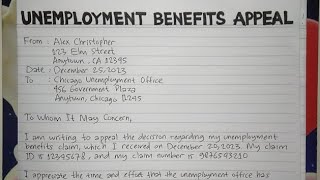 UNEMPLOYMENT BENEFITS APPEAL
From : Alex Christopher
123 Elm Street
Anytown, CA 12345
Date : December 25, 2023
To : Chicago Unemployment Office
456 Government Plaza
Anytown, Chicago 12345
To Whom It May Concern,
I am writing to appeal the decision regarding my unemployment
benefits claim, which I received on December 20, 2023. My claim
ID is 12345678, and my claim number is 9876543210.
I appreciate the time and effort that the unemployment office has